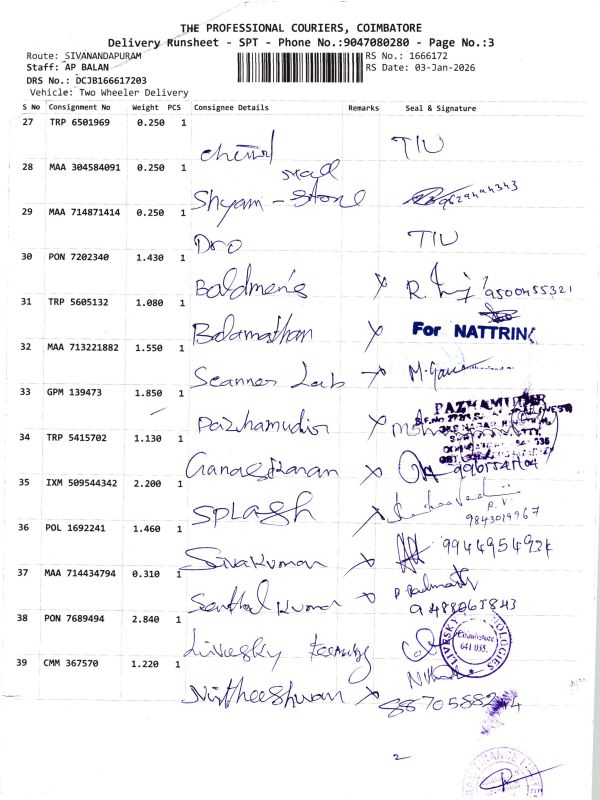 THE PROFESSIONAL COURIERS, COIMBATORE
Delivery Runsheet - SPT - Phone No.:9047080280 - Page No.:3
Route: SIVANANDAPURAM RS No.: 1666172
Staff: AP BALAN RS Date: 03-Jan-2026
DRS No.: DCJB166617203
Vehicle: Two Wheeler Delivery
S No Consignment No Weight PCS Consignee Details Remarks Seal & Signature
27 TRP 6501969 0.250 1
TIU
28 MAA 304584091 0.250 1
Shyam - Stone 9629444343
29 MAA 714871414 0.250 1
Dro TIU
30 PON 7202340 1.430 1
Baldmen's X R. 9500455321
31 TRP 5605132 1.080 1
Balamathan X For NATTRIN
32 MAA 713221882 1.550 1
Scanner Lab X M.
33 GPM 139473 1.850 1
PAZHAMUDIR
Pazhamudir X
34 TRP 5415702 1.130 1
Ganaeskaran X
35 IXM 509544342 2.200 1
SPLASH X
R.V.
9843019967
36 POL 1692241 1.460 1
Sivakumar X 9944954924
37 MAA 714434794 0.310 1
Senthil Kumar X
9488065843
38 PON 7689494 2.840 1
LIVESKY TECHNOLOGIES
Coimbatore
641 035.
Livesky
39 CMM 367570 1.220 1
Nirtheeshwan X 8870588244
2